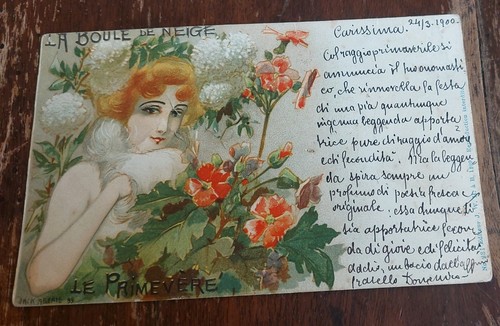 LA BOULE DE NEIGE
24/3.900.
Carissima.
Col raggio primaverile si
annuncia il tuo onomasti
co, che rinnovella la festa
di una pia quantunque
ingenua leggenda apporta
trice pure di raggio d'amore
e di fecondità. Ma la leggen
da spira sempre un
profumo di poesia fresca e
originale; essa dunque ti
sia apportatrice fecon
da di gioie e di felicità
addio, un bacio dall'aff.mo
fratello
LE PRIMEVÈRE